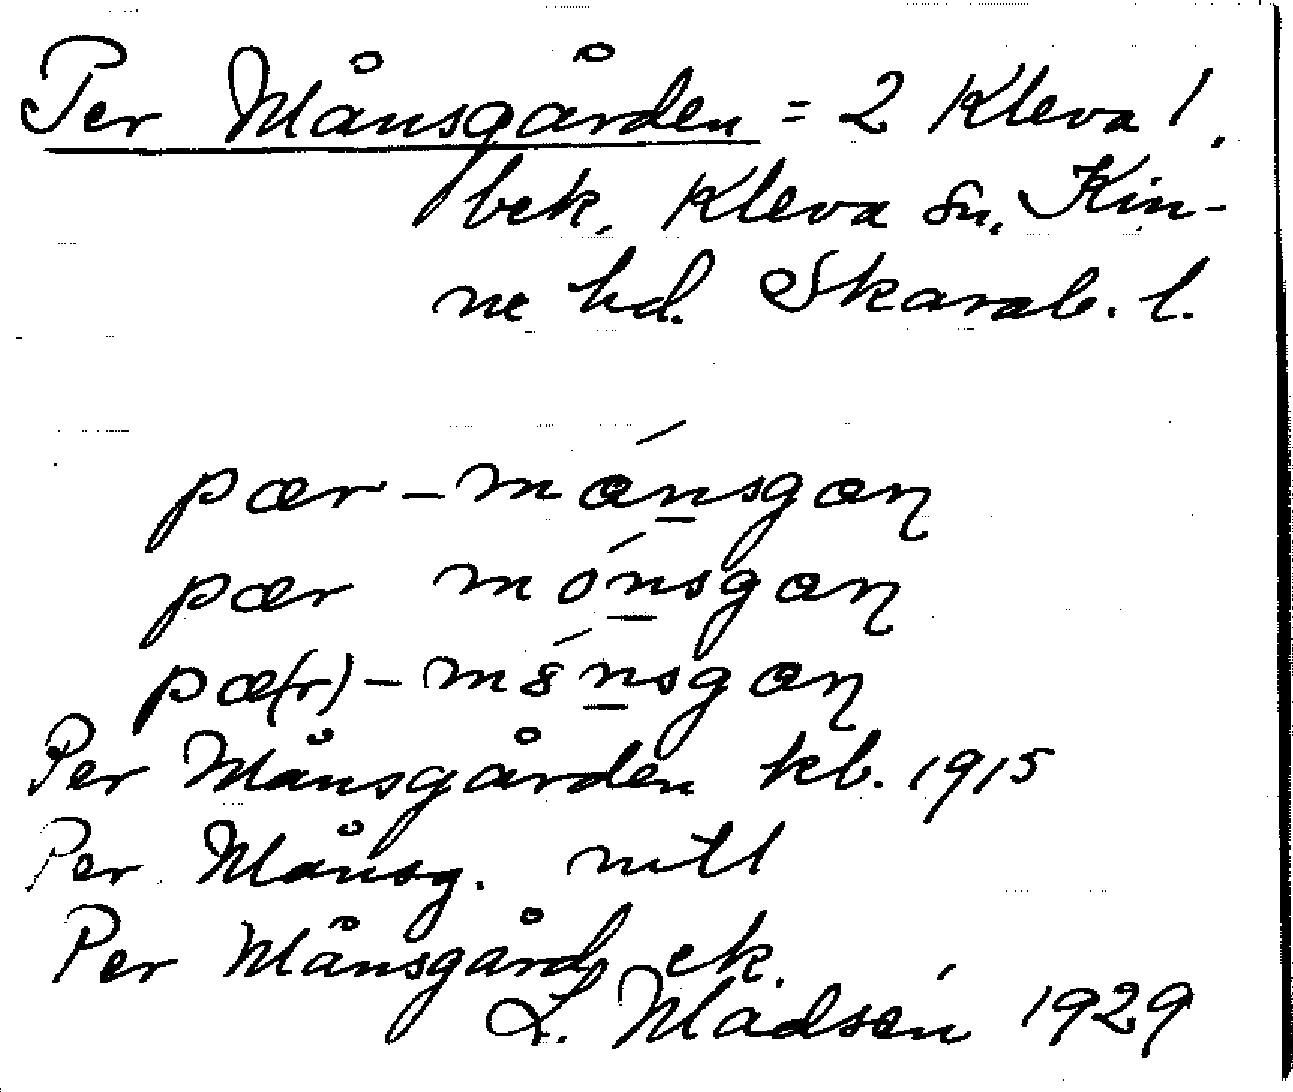 Per Månsgården = 2 Kleva 1,
bek. Kleva sn, Kin-
ne hd. Skarab. l.
pær-månsgaɳ
pær mónsgaɳ
pæ(r)-mónsgaɳ
Per Månsgården kb. 1915
Per Månsg. mtl
Per Månsgård ek.
L. Madsén 1929